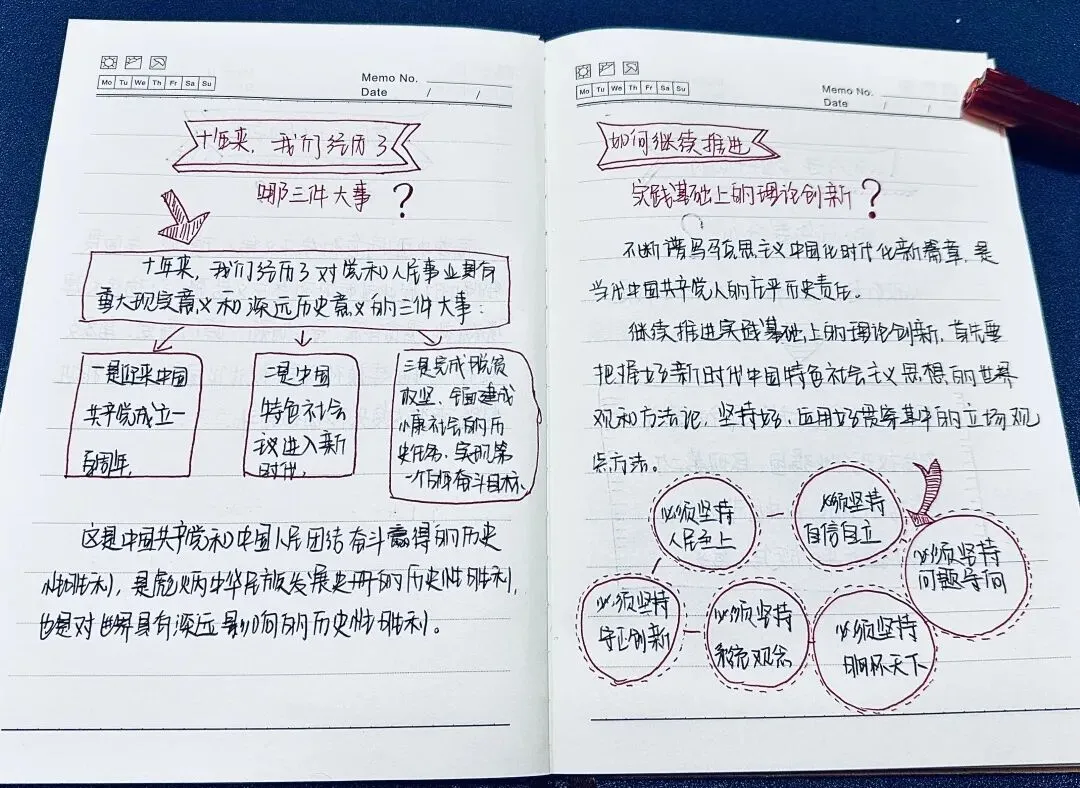 Mo Tu We Th Fr Sa Su
Memo No.
Date / /
十年来，我们经历了
哪三件大事？
十年来，我们经历了对党和人民事业具有
重大现实意义和深远历史意义的三件大事：
一是迎来中国
共产党成立一
百周年，
二是中国
特色社会
主义进入新
时代，
三是完成脱贫
攻坚、全面建成
小康社会的历
史任务，实现第
一个百年奋斗目标。
这是中国共产党和中国人民团结奋斗赢得的历史
性胜利，是彪炳中华民族发展史册的历史性胜利，
也是对世界具有深远影响的历史性胜利。
Mo Tu We Th Fr Sa Su
Memo No.
Date / /
如何继续推进
实践基础上的理论创新？
不断谱写马克思主义中国化时代化新篇章，是
当代中国共产党人的庄严历史责任。
继续推进实践基础上的理论创新，首先要
把握好新时代中国特色社会主义思想的世界
观和方法论，坚持好、应用好贯穿其中的立场观
点方法。
必须坚持
人民至上
必须坚持
自信自立
必须坚持
问题导向
必须坚持
守正创新
必须坚持
系统观念
必须坚持
胸怀天下